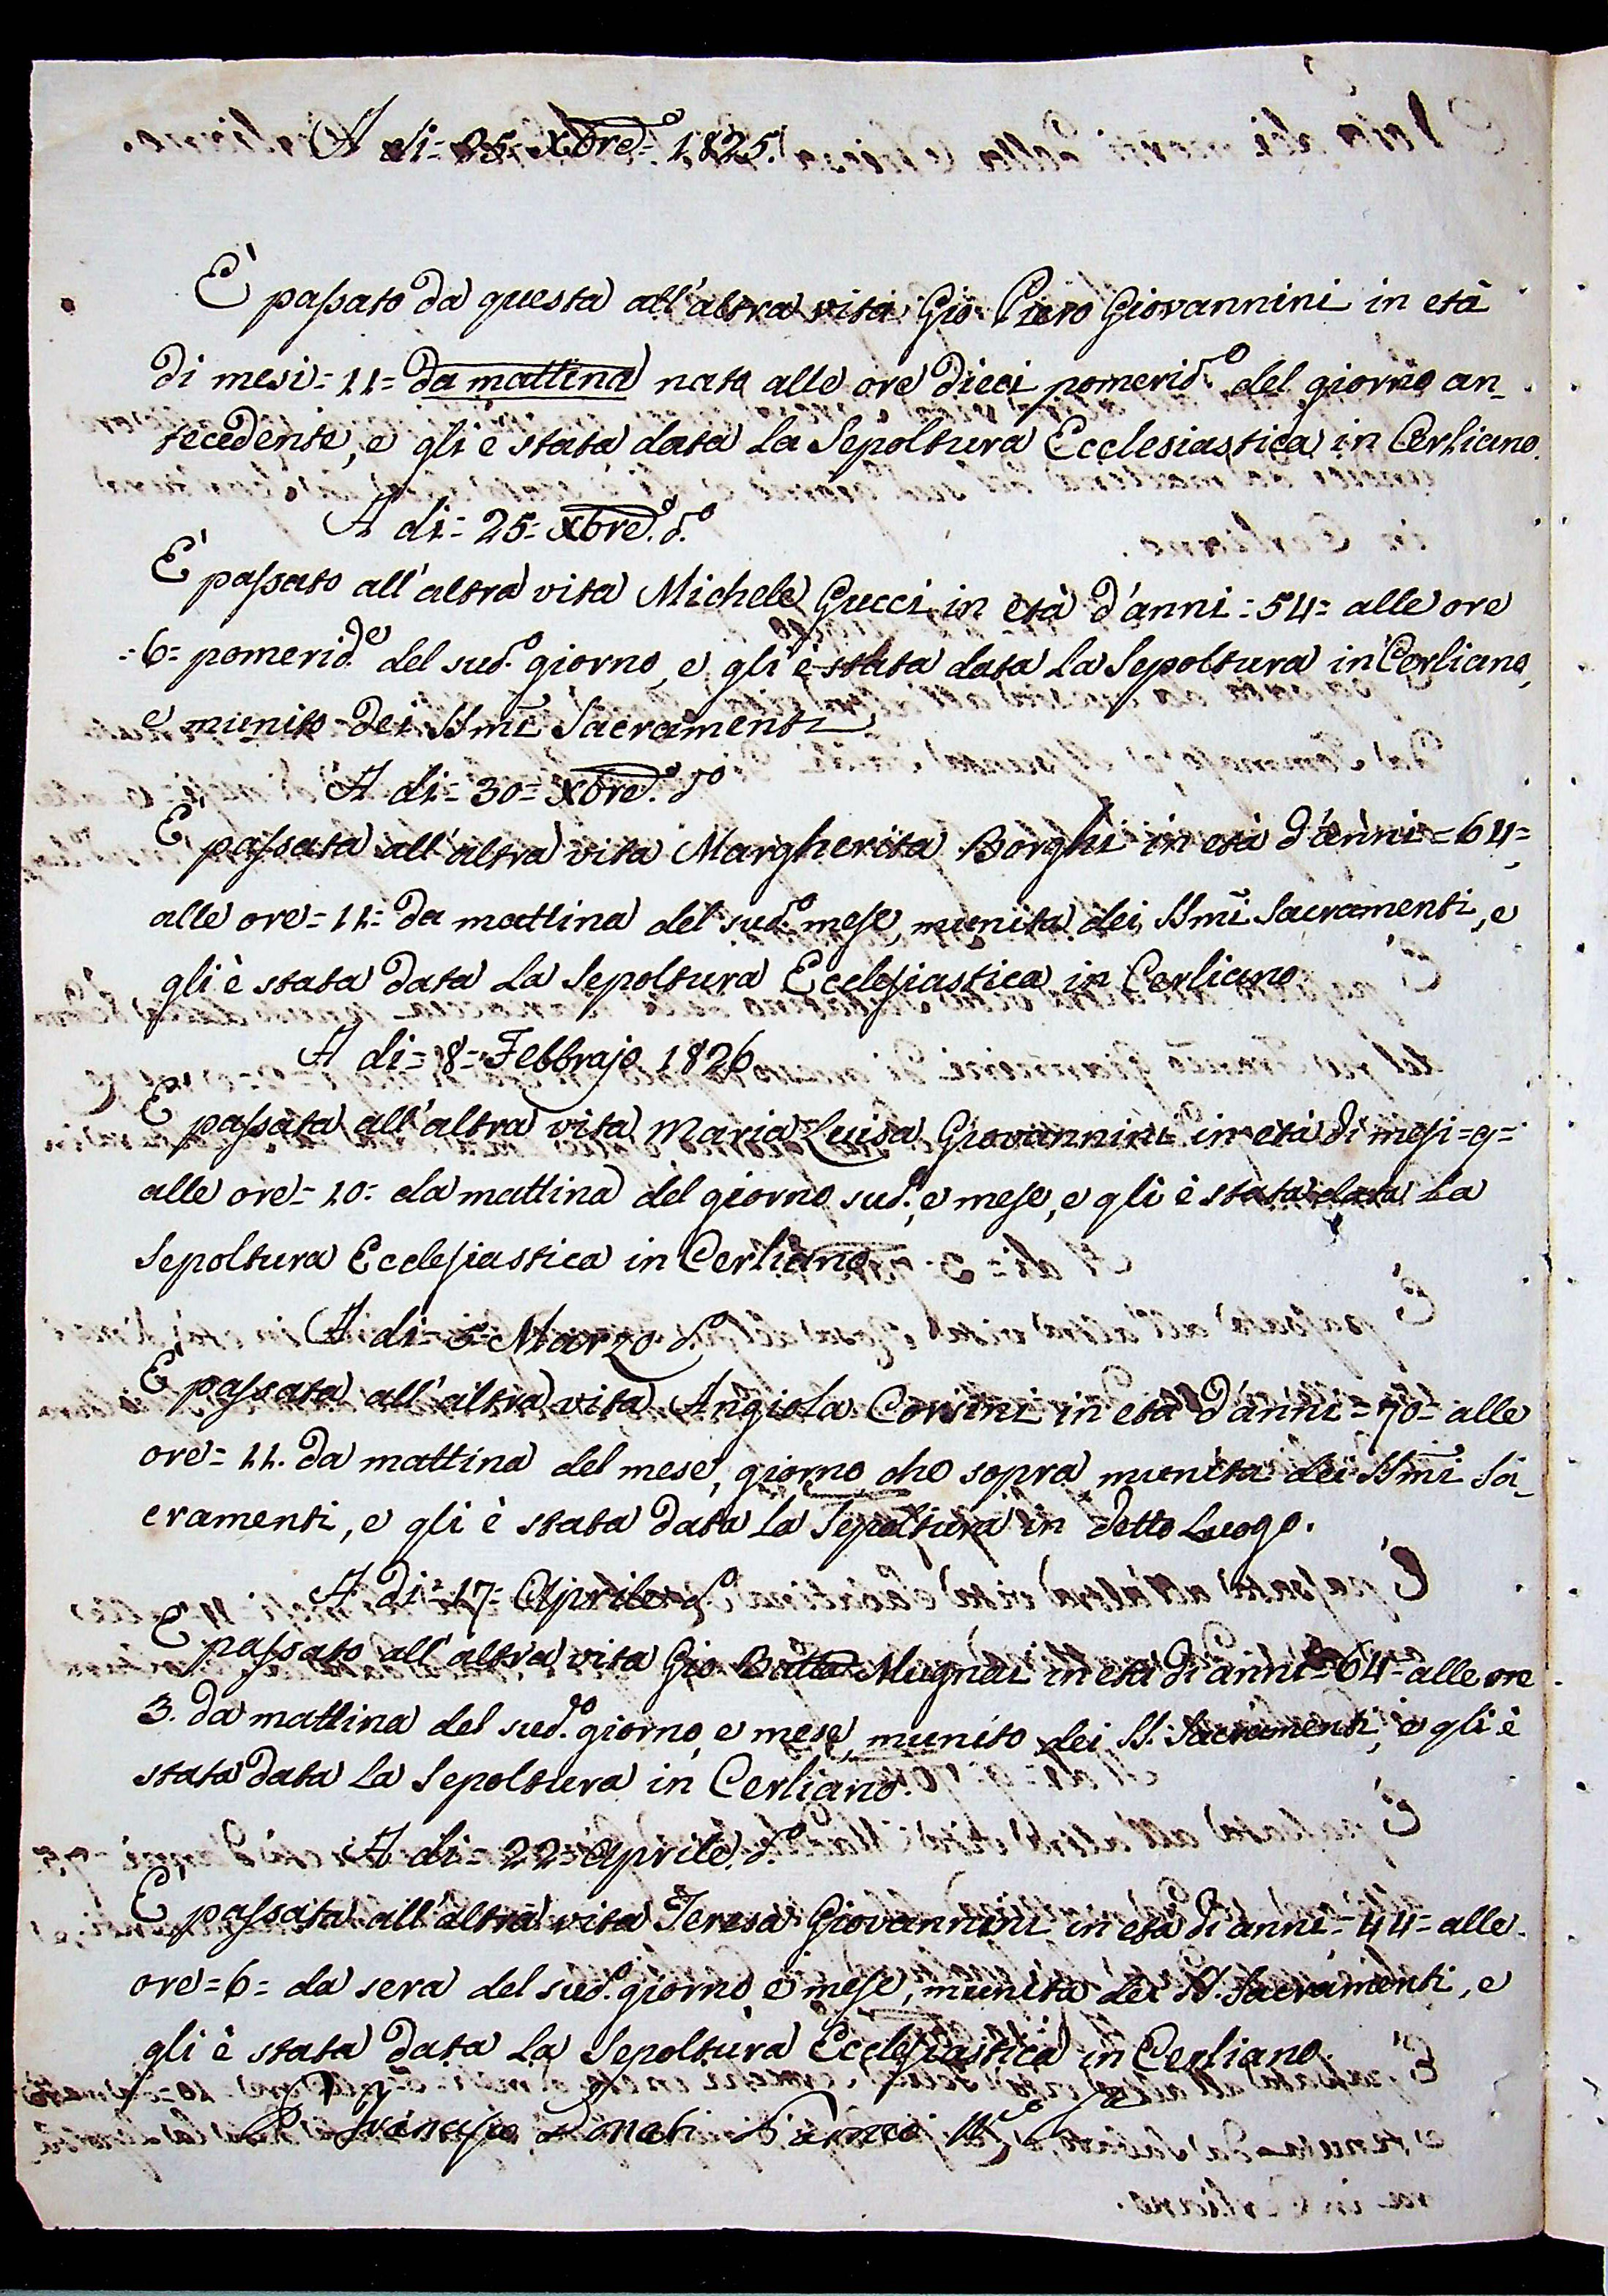 A di = 25 = xbre d.o = 1825.
E' passato da questa all'altra vita Gio: Piero Giovannini in età
di mesi = 11 = da mattina nato alle ore dieci pomerid. del giorno an-
tecedente, e gli è stata data la Sepoltura Ecclesiastica in Cerliano.
A di = 25 = xbre d.o
E' passato all'altra vita Michele Gucci in età d'anni = 54 = alle ore
= 6 = pomerid.e del sud.o giorno, e gli è stata data la Sepoltura in Cerliano,
e munito dei SSmi Sacramenti
A di = 30 = xbre d.o
E' passata all'altra vita Margherita Borghi in età d'anni = 64 =
alle ore = 11 = da mattina del sud.o mese, munita dei SSmi Sacramenti, e
gli è stata data la Sepoltura Ecclesiastica in Cerliano
A di = 8 = Febbrajo 1826
E' passata all'altra vita Maria Luisa Giovannini in età di mesi = 9 =
alle ore = 10 = da mattina del giorno sud.o, e mese, e gli è stata data la
Sepoltura Ecclesiastica in Cerliano
A di = 5 = Marzo d.o
E' passata all'altra vita Angiola Corsini in età d'anni = 70 = alle
ore = 11. da mattina del mese, giorno che sopra munita dei SSmi Sa-
cramenti, e gli è stata data la Sepoltura in detto Luogo.
A di = 17 = Aprile d.o
E' passato all'altra vita Gio Batta Mugnai in età di anni = 64 = alle ore
3. da mattina del sud.o giorno, e mese, munito dei SS. Sacramenti, e gli è
stata data la Sepoltura in Cerliano.
A di = 22 = Aprile d.o
E' passata all'altra vita Teresa Giovannini in età di anni = 44 = alle
ore = 6 = da sera del sud.o giorno e mese, munita dei SS. Sacramenti, e
gli è stata data la Sepoltura Ecclesiastica in Cerliano.
Donati